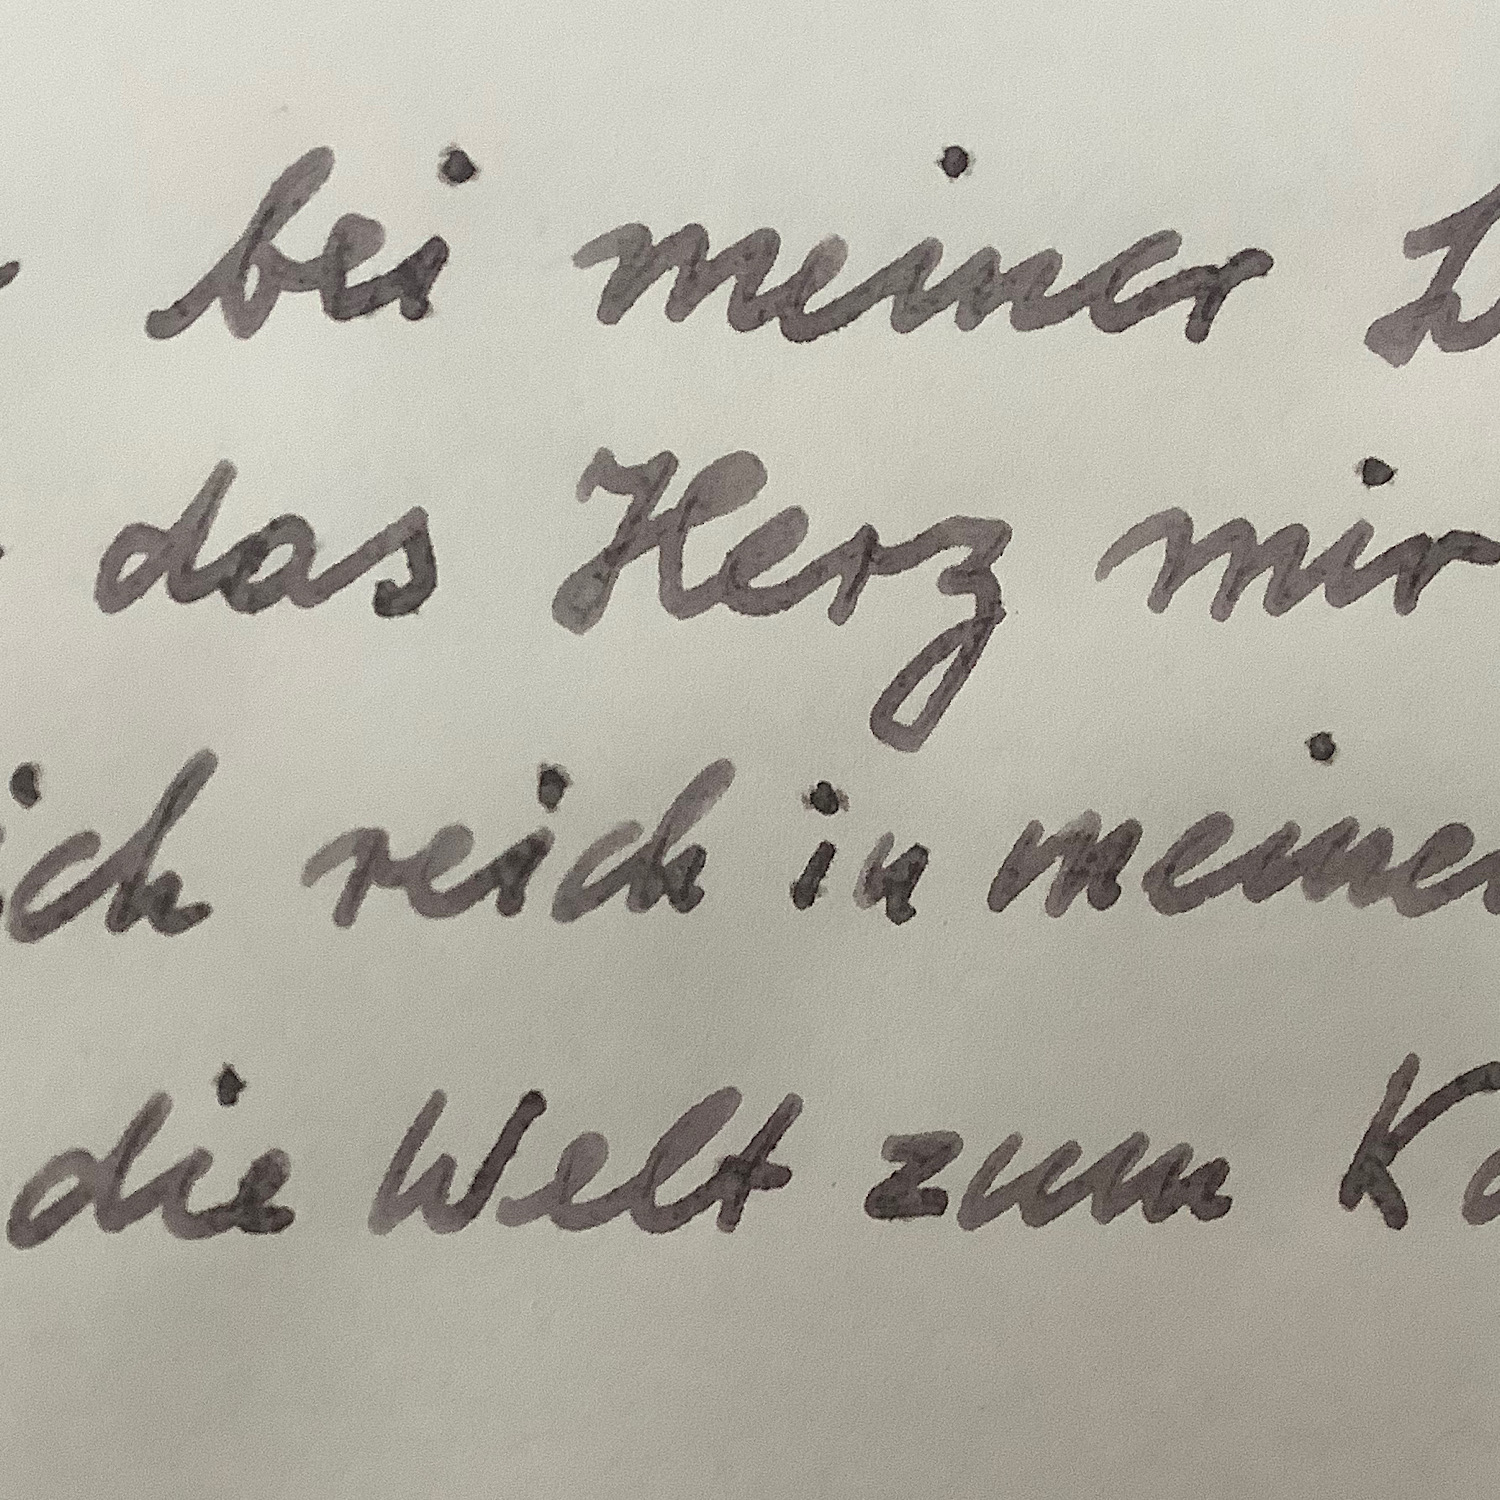 bei meiner
das Herz mir
ich reich in meiner
die Welt zum